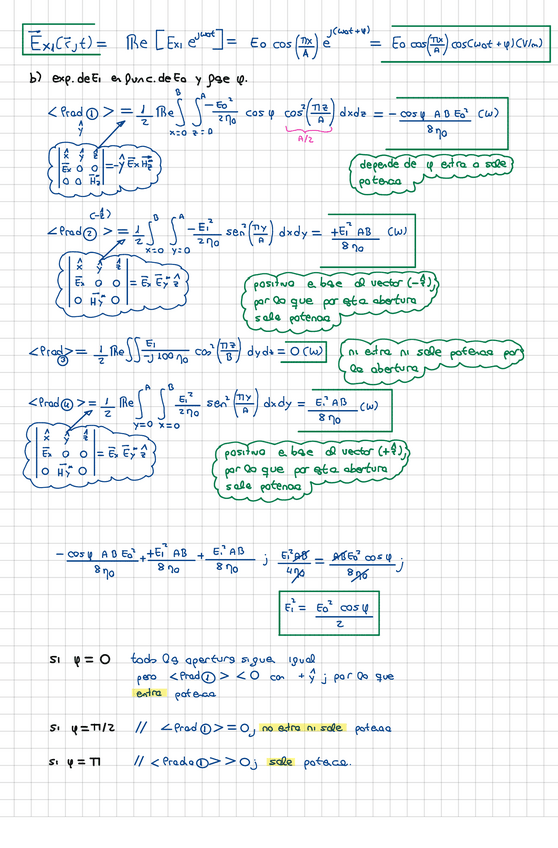 E⃗x₁(r⃗,t) = Re [Ex₁ e^{jω₀t}] = E₀ cos(πx/A) e^{j(ω₀t+φ)} = E₀ cos(πx/A) cos(ω₀t+φ) (V/m)
b) exp. de E₁ en func. de E₀ y fase φ.
<Prad①> = 1/2 Re ∫_{x=0}^{B} ∫_{z=0}^{A} -E₀²/2η₀ cos φ cos²(πz/A) dxdz = - cos φ A B E₀²/8η₀ (W)
ŷ
A/2
|x̂ ŷ ẑ; Ex 0 0; 0 0 Hz| = -ŷ Ex Hz*
depende de φ entra o sale
potencia
(-ẑ)
<Prad②> = 1/2 ∫_{x=0}^{B} ∫_{y=0}^{A} -E₁²/2η₀ sen²(πy/A) dxdy = +E₁² AB/8η₀ (W)
|x̂ ŷ ẑ; Ex 0 0; 0 Hy* 0| = Ex Ey* ẑ
positiva e base al vector (-ẑ),
por lo que por esta abertura
sale potencia
<Prad③> = 1/2 Re ∫∫ E₁/-j100η₀ cos²(πz/B) dydz = 0 (W)
ni entra ni sale potencia por
la abertura
<Prad④> = 1/2 Re ∫_{y=0}^{A} ∫_{x=0}^{B} E₁²/2η₀ sen²(πy/A) dxdy = E₁² AB/8η₀ (W)
|x̂ ŷ ẑ; Ex 0 0; 0 Hy* 0| = Ex Ey* ẑ
positiva e base al vector (+ẑ)
por lo que por esta abertura
sale potencia
- cos φ A B E₀²/8η₀ + +E₁² AB/8η₀ + E₁² AB/8η₀ ; E₁²AB/4η₀ = ABE₀² cos φ/8η₀ ;
E₁² = E₀² cos φ/2
si φ = 0 todo la apertura sigue igual
pero <Prad①> < 0 con +ŷ ; por lo que
entra potencia
si φ = π/2 // <Prad①> = 0, no entra ni sale potencia
si φ = π // <Prada①> > 0; sale potencia.